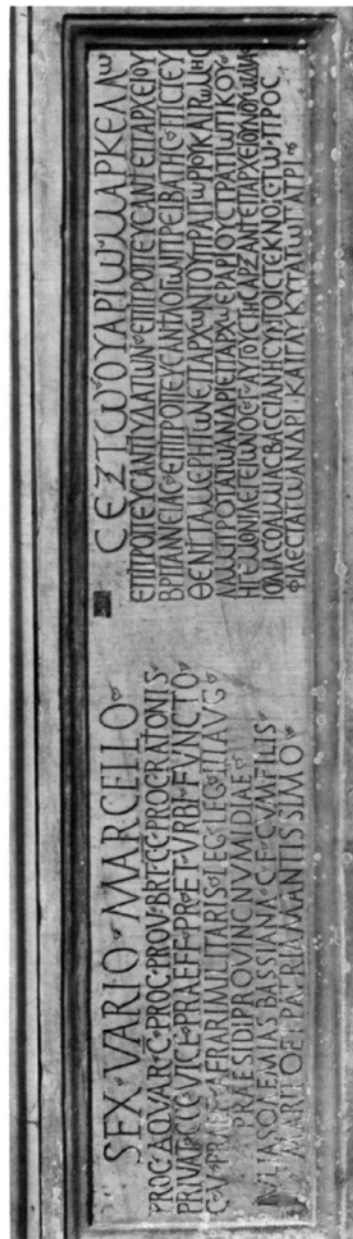 SEX · VARIO · MARCELLO
PROC · AQVAR · C · PROC · PROV · BRIT · CC · PROC · RATIONIS
PRIVAT · CCC · VICE · PRAEFF · PR · ET · VRBI · FVNCTO
C · V · PRAEF · AERARI MILITARIS · LEG · LEG · III AVG
PRAESIDI PROVINC NVMIDIAE
IVLIA SOAEMIAS BASSIANA · C · F · CVM FILIS
MARITO ET PATRI AMANTISSIMO
CΕΞΤΩ ΟΥΑΡΙΩ ΜΑΡΚΕΛΛΩ
ΕΠΙΤΡΟΠΕΥCΑΝΤΙ ΥΔΑΤΩΝ ΕΠΙΤΡΟΠΕΥCΑΝΤΙ ΕΠΑΡΧΕΙΟΥ
ΒΡΙΤΑΝΝΕΙΑC ΕΠΙΤΡΟΠΕΥCΑΝΤΙ ΛΟΓΩΝ ΠΡΕΙΒΑΤΗC ΠΙCΤΕΥ
ΘΕΝΤΙ ΤΑ ΜΕΡΗ ΤΩΝ ΕΠΑΡΧΩΝ ΤΟΥ ΠΡΑΙΤΩΡΙΟΥ ΚΑΙ ΡΩΜΗC
ΛΑΜΠΡΟΤΑΤΩ ΑΝΔΡΙ ΕΠΑΡΧΩ ΕΡΑΡΙΟΥ CΤΡΑΤΙΩΤΙΚΟΥ
ΗΓΕΜΟΝΙ ΛΕΓΕΙΩΝΟC Γ ΑΥΓΟΥCΤΗC ΑΡΞΑΝΤΙ ΕΠΑΡΧΕΙΟΥ ΝΟΥΜΙΔΙΑC
ΙΟΥΛΙΑ CΟΑΙΜΙΑC ΒΑCCΙΑΝΗ CΥΝ ΤΟΙC ΤΕΚΝΟΙC ΤΩ ΠΡΟC
ΦΙΛΕCΤΑΤΩ ΑΝΔΡΙ ΚΑΙ ΓΛΥΚΥΤΑΤΩ ΠΑΤΡΙ